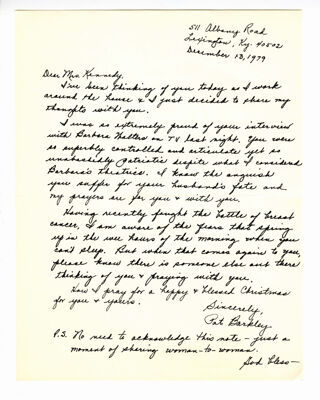 511 Albany Road
Lexington, Ky. 40502
December 13, 1979
Dear Mrs. Kennedy,
I've been thinking of you today as I work
around the house & I just decided to share my
thoughts with you.
I was so extremely proud of your interview
with Barbara Walters on TV last night. You were
so superbly controlled and articulate yet so
unabashedly patriotic despite what I considered
Barbara's theatrics. I know the anguish
you suffer for your husband's fate and
my prayers are for you & with you.
Having recently fought the battle of breast
cancer, I am aware of the fears that spring
up in the wee hours of the morning when you
can't sleep. But when that comes again to you,
please know there is someone else out there
thinking of you & praying with you.
How I pray for a happy & blessed Christmas
for you & yours.
Sincerely,
Pat Barkley
P.S. No need to acknowledge this note - just a
moment of sharing woman-to-woman.
God bless -